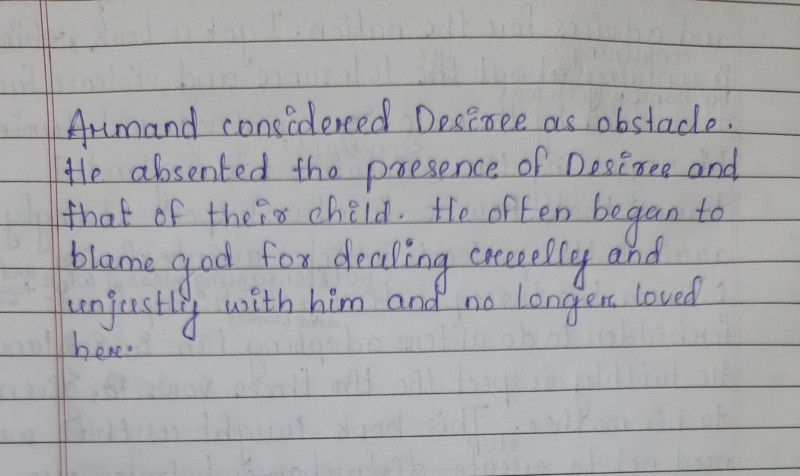 Armand considered Desiree as obstacle.
He absented the presence of Desiree and
that of their child. He often began to
blame god for dealing cruelly and
unjustly with him and no longer loved
her.